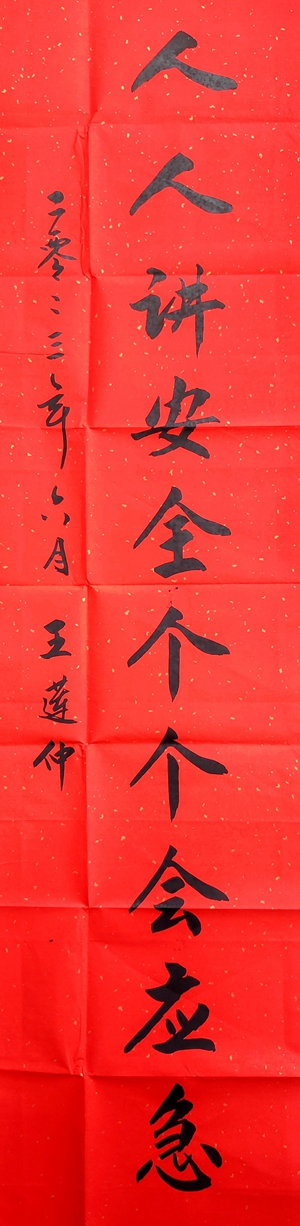 人人讲安全个个会应急
二零二三年六月 王莲仲